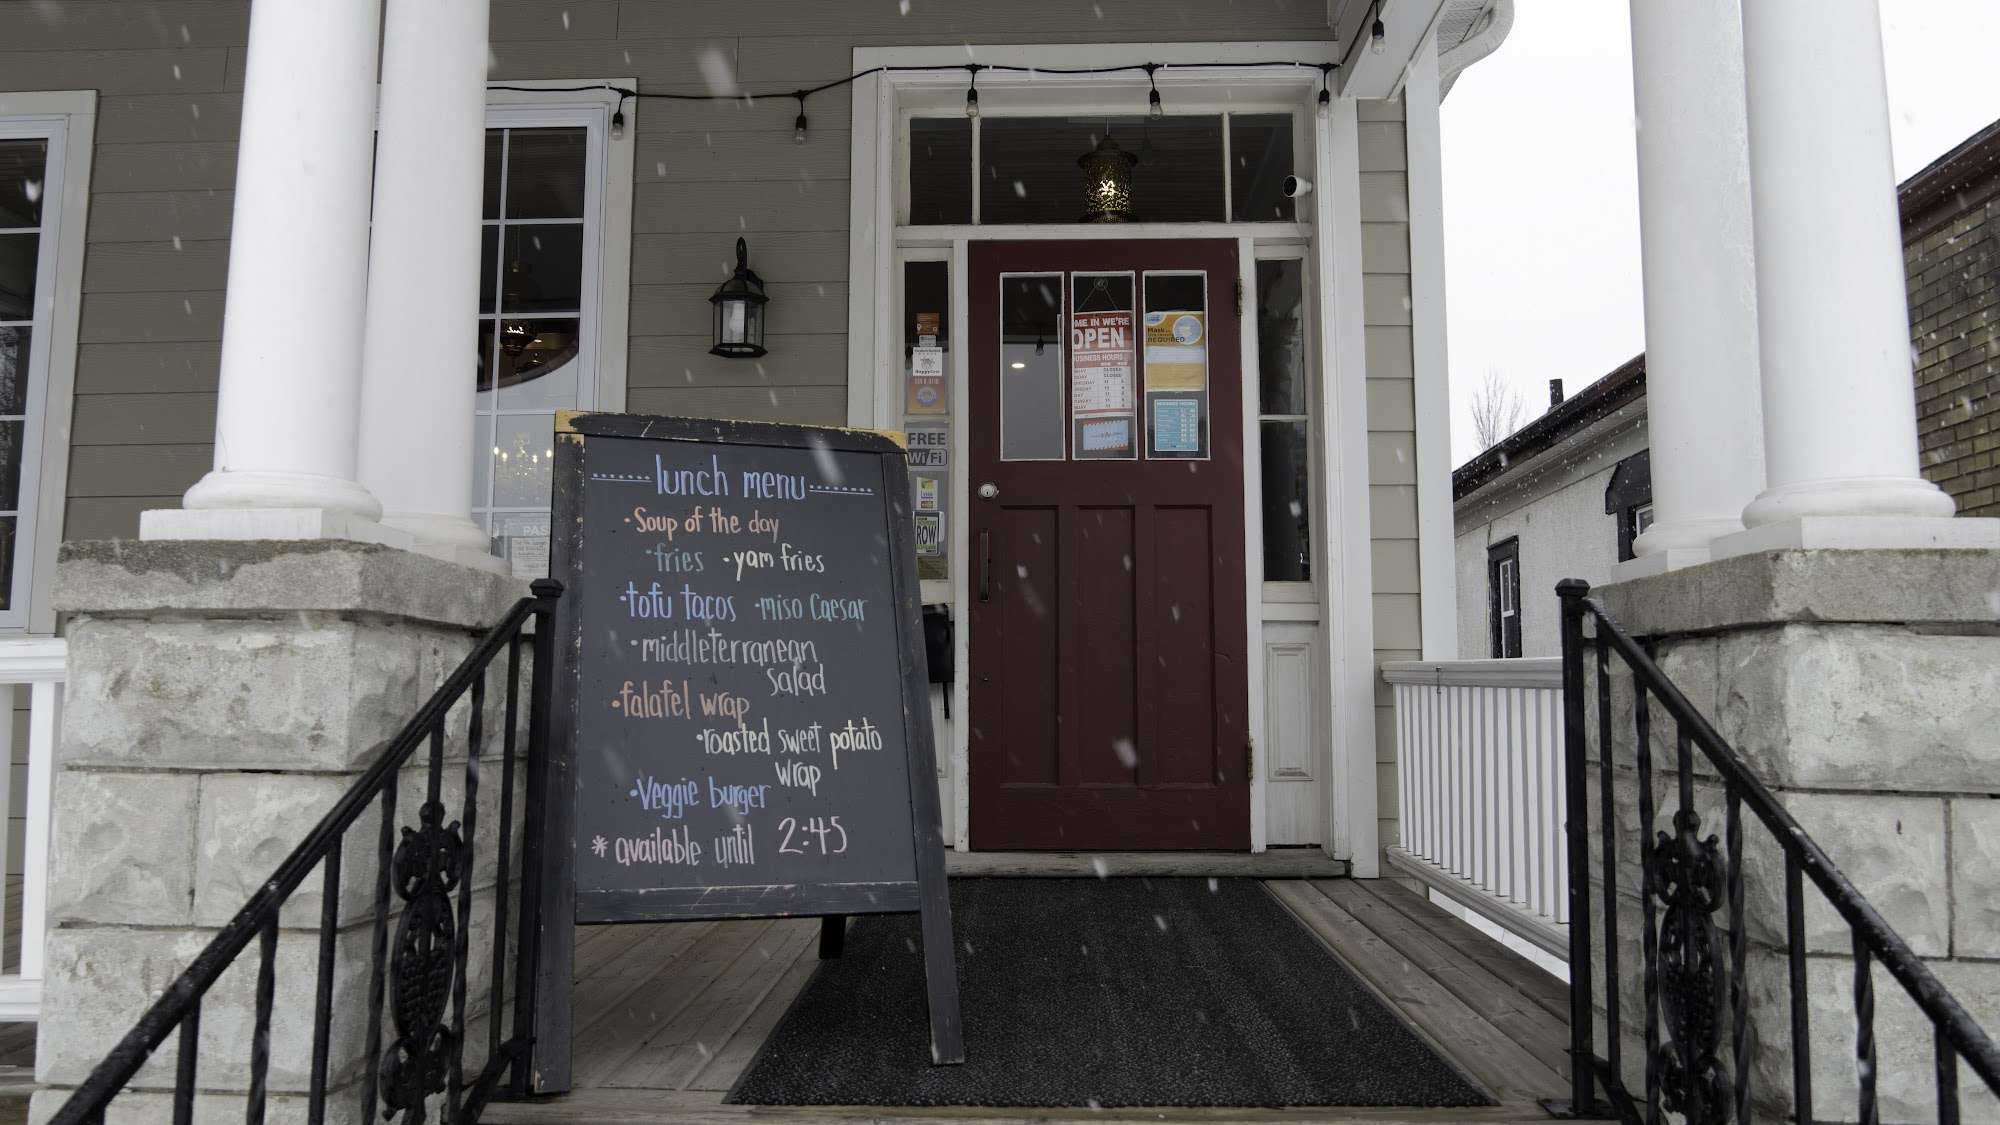 lunch menu
• Soup of the day
• fries • yam fries
• tofu tacos • miso Caesar
• middleterranean
salad
• falafel wrap
• roasted sweet potato
wrap
• Veggie burger
* available until 2:45
OME IN WE'RE
OPEN
USINESS HOURS
CLOSED
CLOSED
Mask
REQUIRED
BUSINESS HOURS
FREE
WiFi
VISA
ROW
PAS